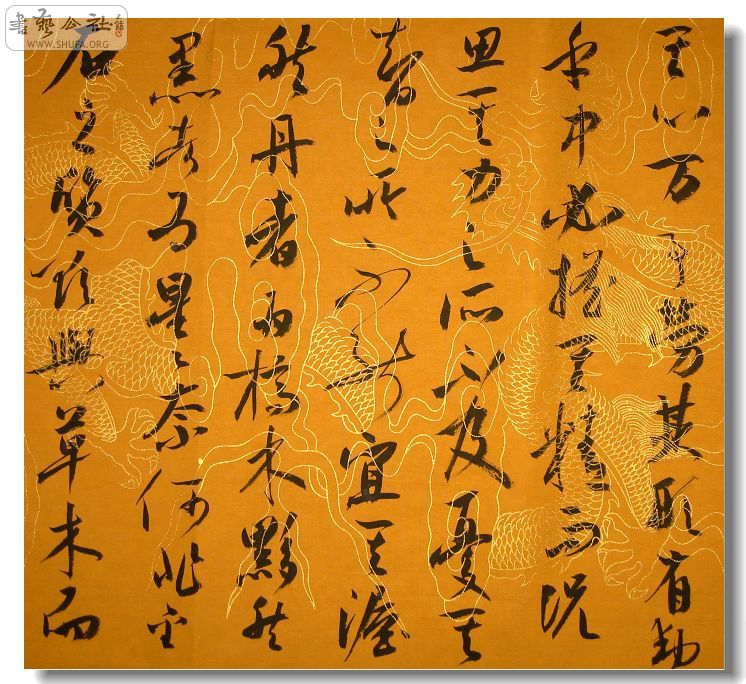 書藝公社
WWW.SHUFA.ORG
其心万事勞其形有動
于中必搖其精而況
思其力之所不及憂其
智之所不能宜其渥
然丹者為槁木黟然
黑者為星星奈何非金
石之質欲與草木而